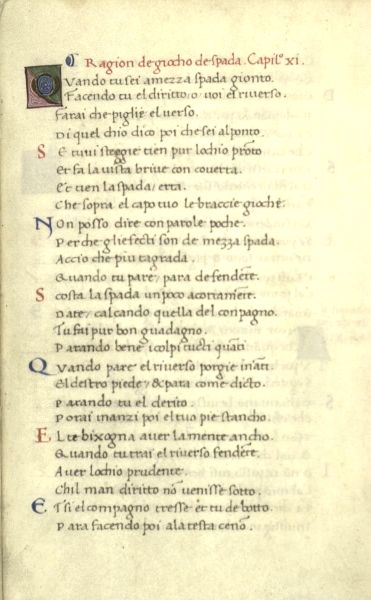 Ragion de giocho de spada. Capilo xi.
Quando tu sei amezza spada gionto.
Facendo tu el diritto, o voi el riverso.
Farai che piglie el verso.
Di quel chio dico poi che sei al ponto.
Se tu vi steggie tien pur lochio pronto
Et fa la vista brive con coverta.
Et tien la spada erta.
Che sopra el capo tuo le braccie gioche.
Non posso dire con parole poche.
Perche gliefecti son de mezza spada.
Accio che piu tagrada.
Quando tu pare, para de fendente.
Scosta la spada un poco acortamente.
Da te, calcando quella del conpagno.
Tu fai pur bon guadagno.
Parando bene icolpi tucti quanti
Quando pare el riverso porgie inanti.
El destro piede, & para come dicto.
Parando tu el derito.
Porai inanzi poi el tuo pie stancho.
El te bixogna aver la mente ancho.
Quando tu trai el riverso fendente.
Aver lochio prudente.
Chil man diritto non venisse sotto.
Et si el compagno tresse et tu de botto.
Para facendo poi ala testa ceno.